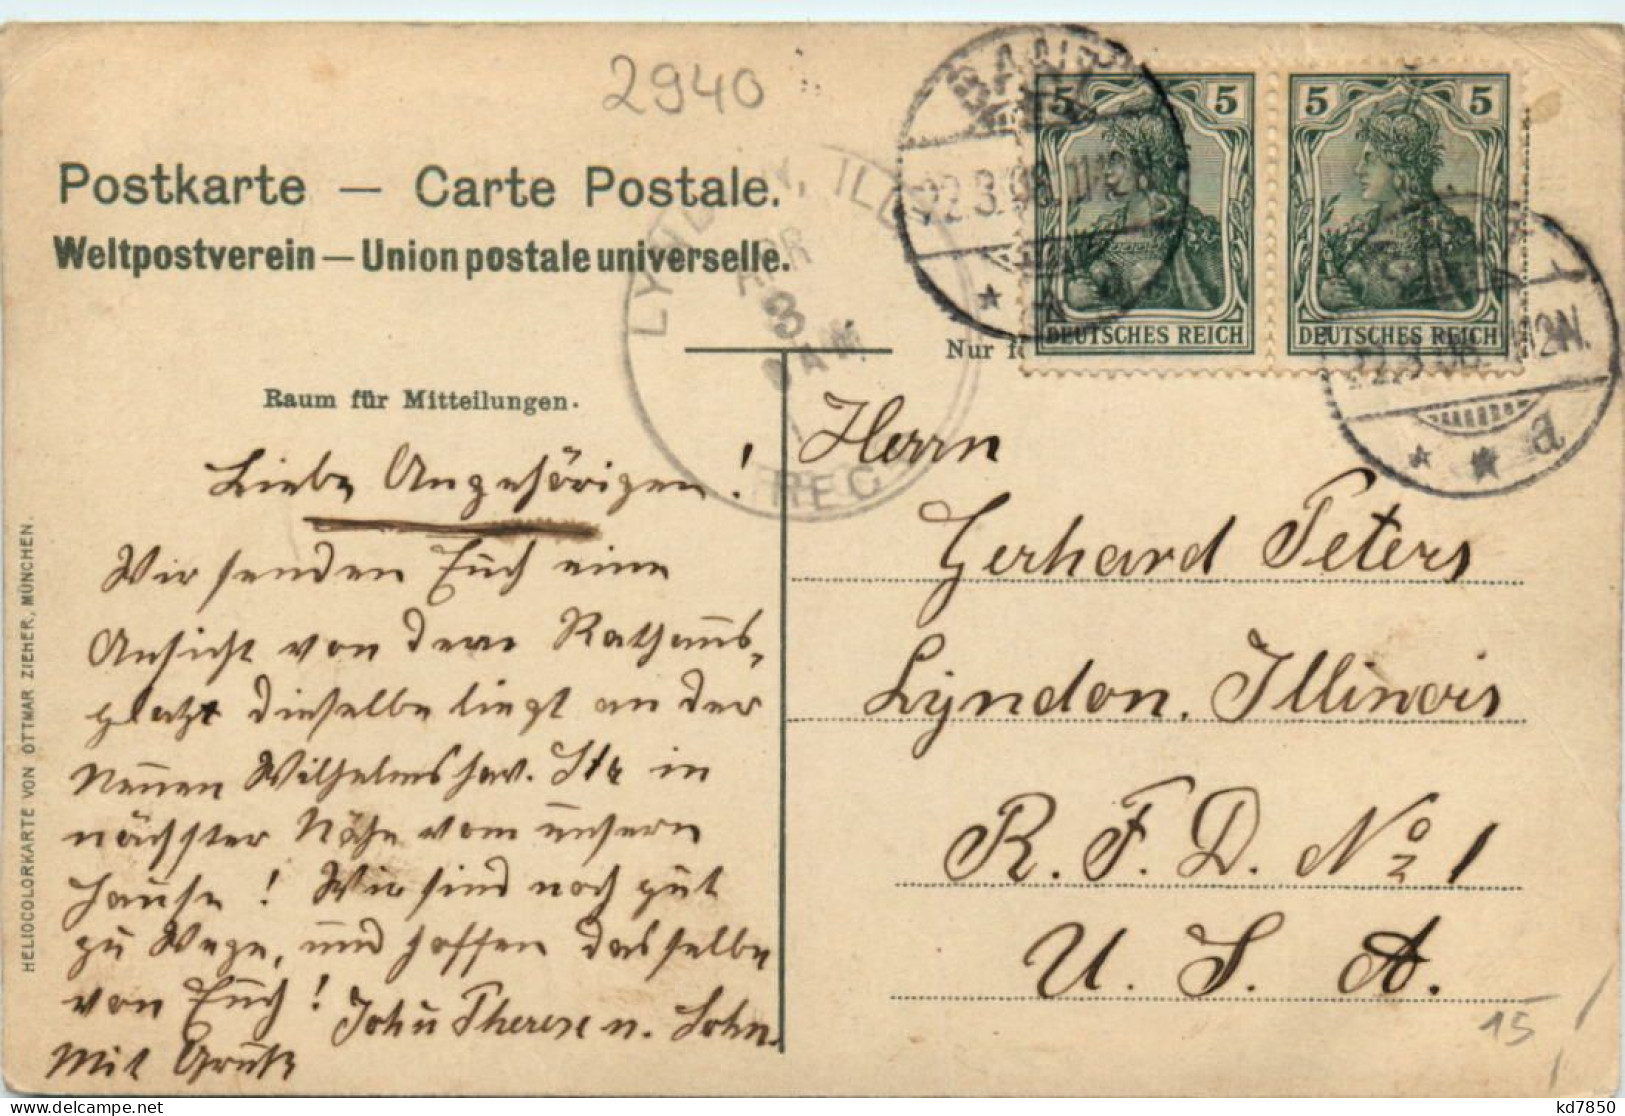 2940
Postkarte — Carte Postale.
Weltpostverein — Union postale universelle.
BANT
22.3.08.11-12N.
* a
5 5
DEUTSCHES REICH
5 5
DEUTSCHES REICH
22.3.08. 12N.
* * a
LYNDON, ILL.
APR
3
8 AM
REC'
Nur f
Raum für Mitteilungen.
Liebe Angehörigen!
Wir senden Euch eine
Ansicht von dem Rathaus-
platze dieselbe liegt an der
Neuen Wilhelmshav. Str in
nächster Nähe vom unsern
Hause! Wir sind noch gut
zu Wege, und hoffen dasselbe
von Euch!
Joh u Therese n. Sohn.
Mit Gruß
Herrn
Gerhard Peters
Lyndon. Illinois
R. F. D. No 1
U. S. A.
15
HELIOCOLORKARTE VON OTTMAR ZIEHER, MÜNCHEN.
kd7850